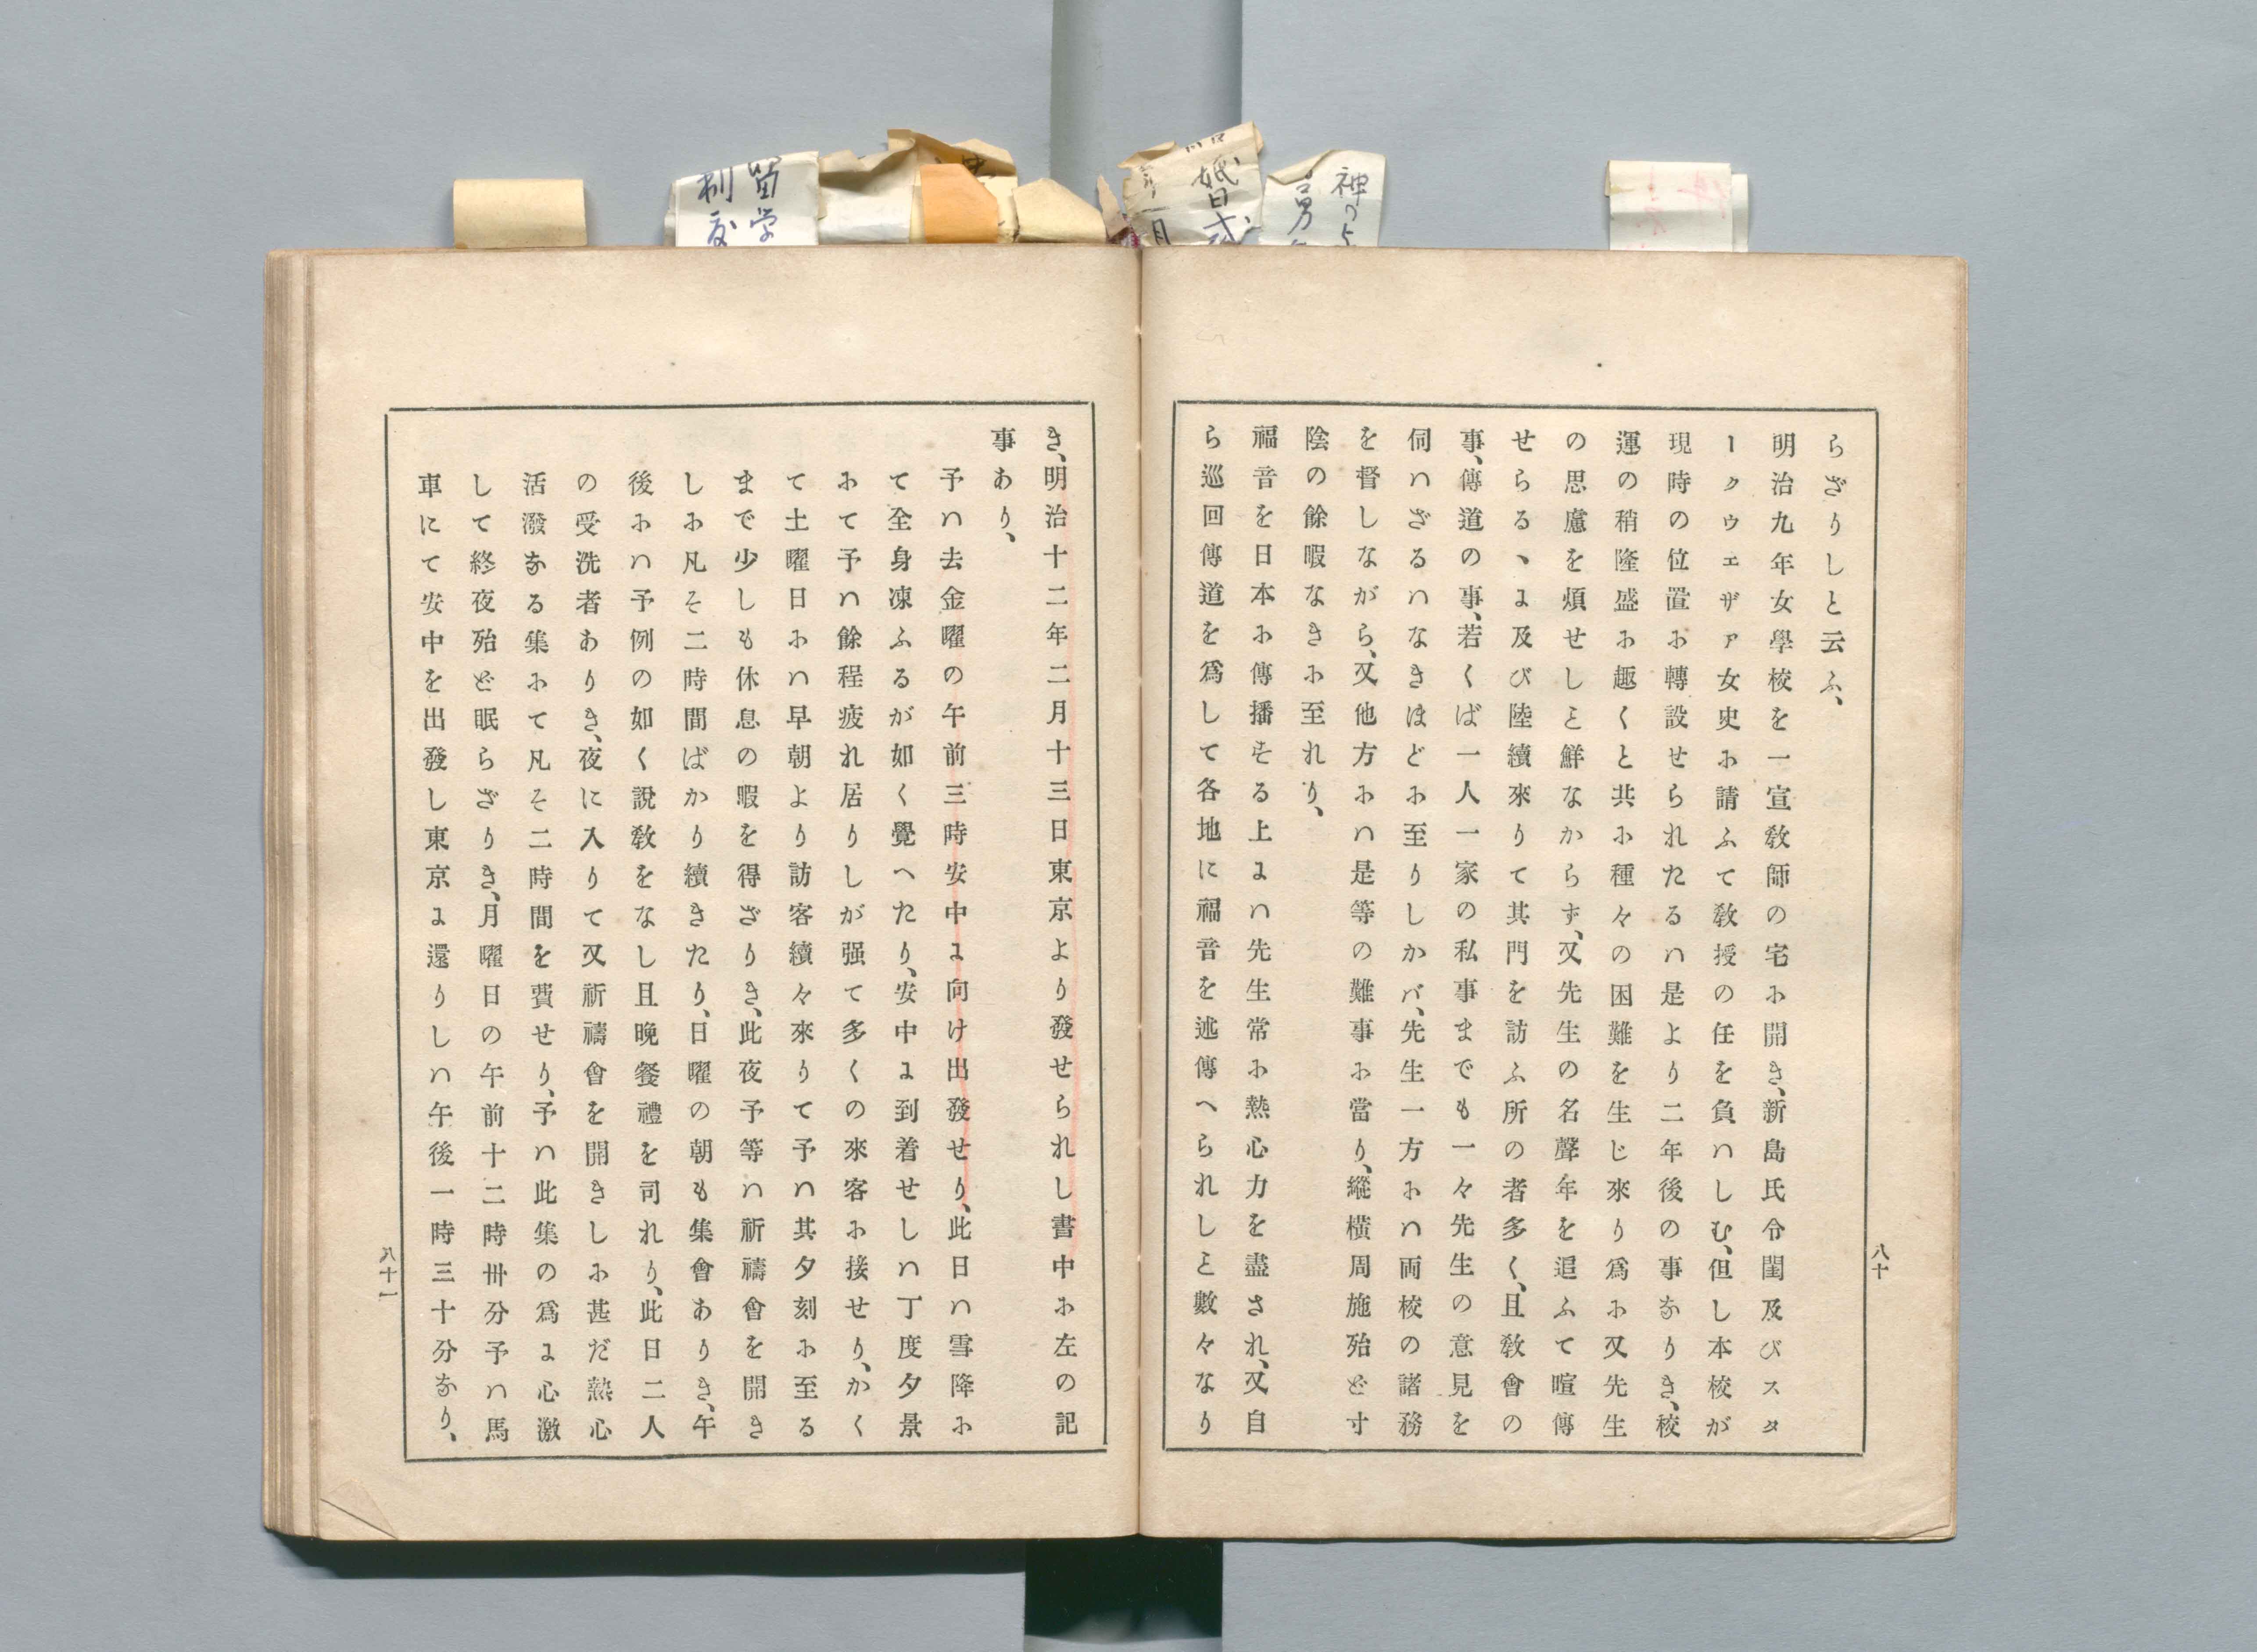 らざりしと云ふ、
明治九年女學校を一宣敎師の宅に開き、新島氏令閨及びスタ
ークウェザァ女史に請ふて敎授の任を負はしむ、但し本校が
現時の位置に轉設せられたるは是より二年後の事なりき、校
運の稍隆盛に趣くと共に種々の困難を生じ來り爲に又先生
の思慮を煩せしこと鮮なからず、又先生の名聲年を追ふて喧傳
せらるゝに及び陸續來りて其門を訪ふ所の者多く、且敎會の
事、傳道の事、若くば一人一家の私事までも一々先生の意見を
伺はざるはなきほどに至りしかバ、先生一方には両校の諸務
を督しながら、又他方には是等の難事に當り、縱橫周施殆ど寸
陰の餘暇なきに至れり、
福音を日本に傳播する上には先生常に熱心力を盡され、又自
ら巡回傳道を爲して各地に福音を述傳へられしこと數々なり
八十
き、明治十二年二月十三日東京より發せられし書中に左の記
事あり、
予は去金曜の午前三時安中に向け出發せり、此日は雪降に
て全身凍ふるが如く覺へたり、安中に到着せしは丁度夕景
にて予は餘程疲れ居りしが强て多くの來客に接せり、かく
て土曜日には早朝より訪客續々來りて予は其夕刻に至る
まで少しも休息の暇を得ざりき、此夜予等は祈禱會を開き
しに凡そ二時間ばかり續きたり、日曜の朝も集會ありき、午
後には予例の如く說敎をなし且晩餐禮を司れり、此日二人
の受洗者ありき、夜に入りて又祈禱會を開きしに甚だ熱心
活潑なる集にて凡そ二時間を費せり、予は此集の爲に心激
して終夜殆ど眠らざりき、月曜日の午前十二時卅分予は馬
車にて安中を出發し東京に還りしは午後一時三十分なり、
八十一
留学
制度
婚
神の